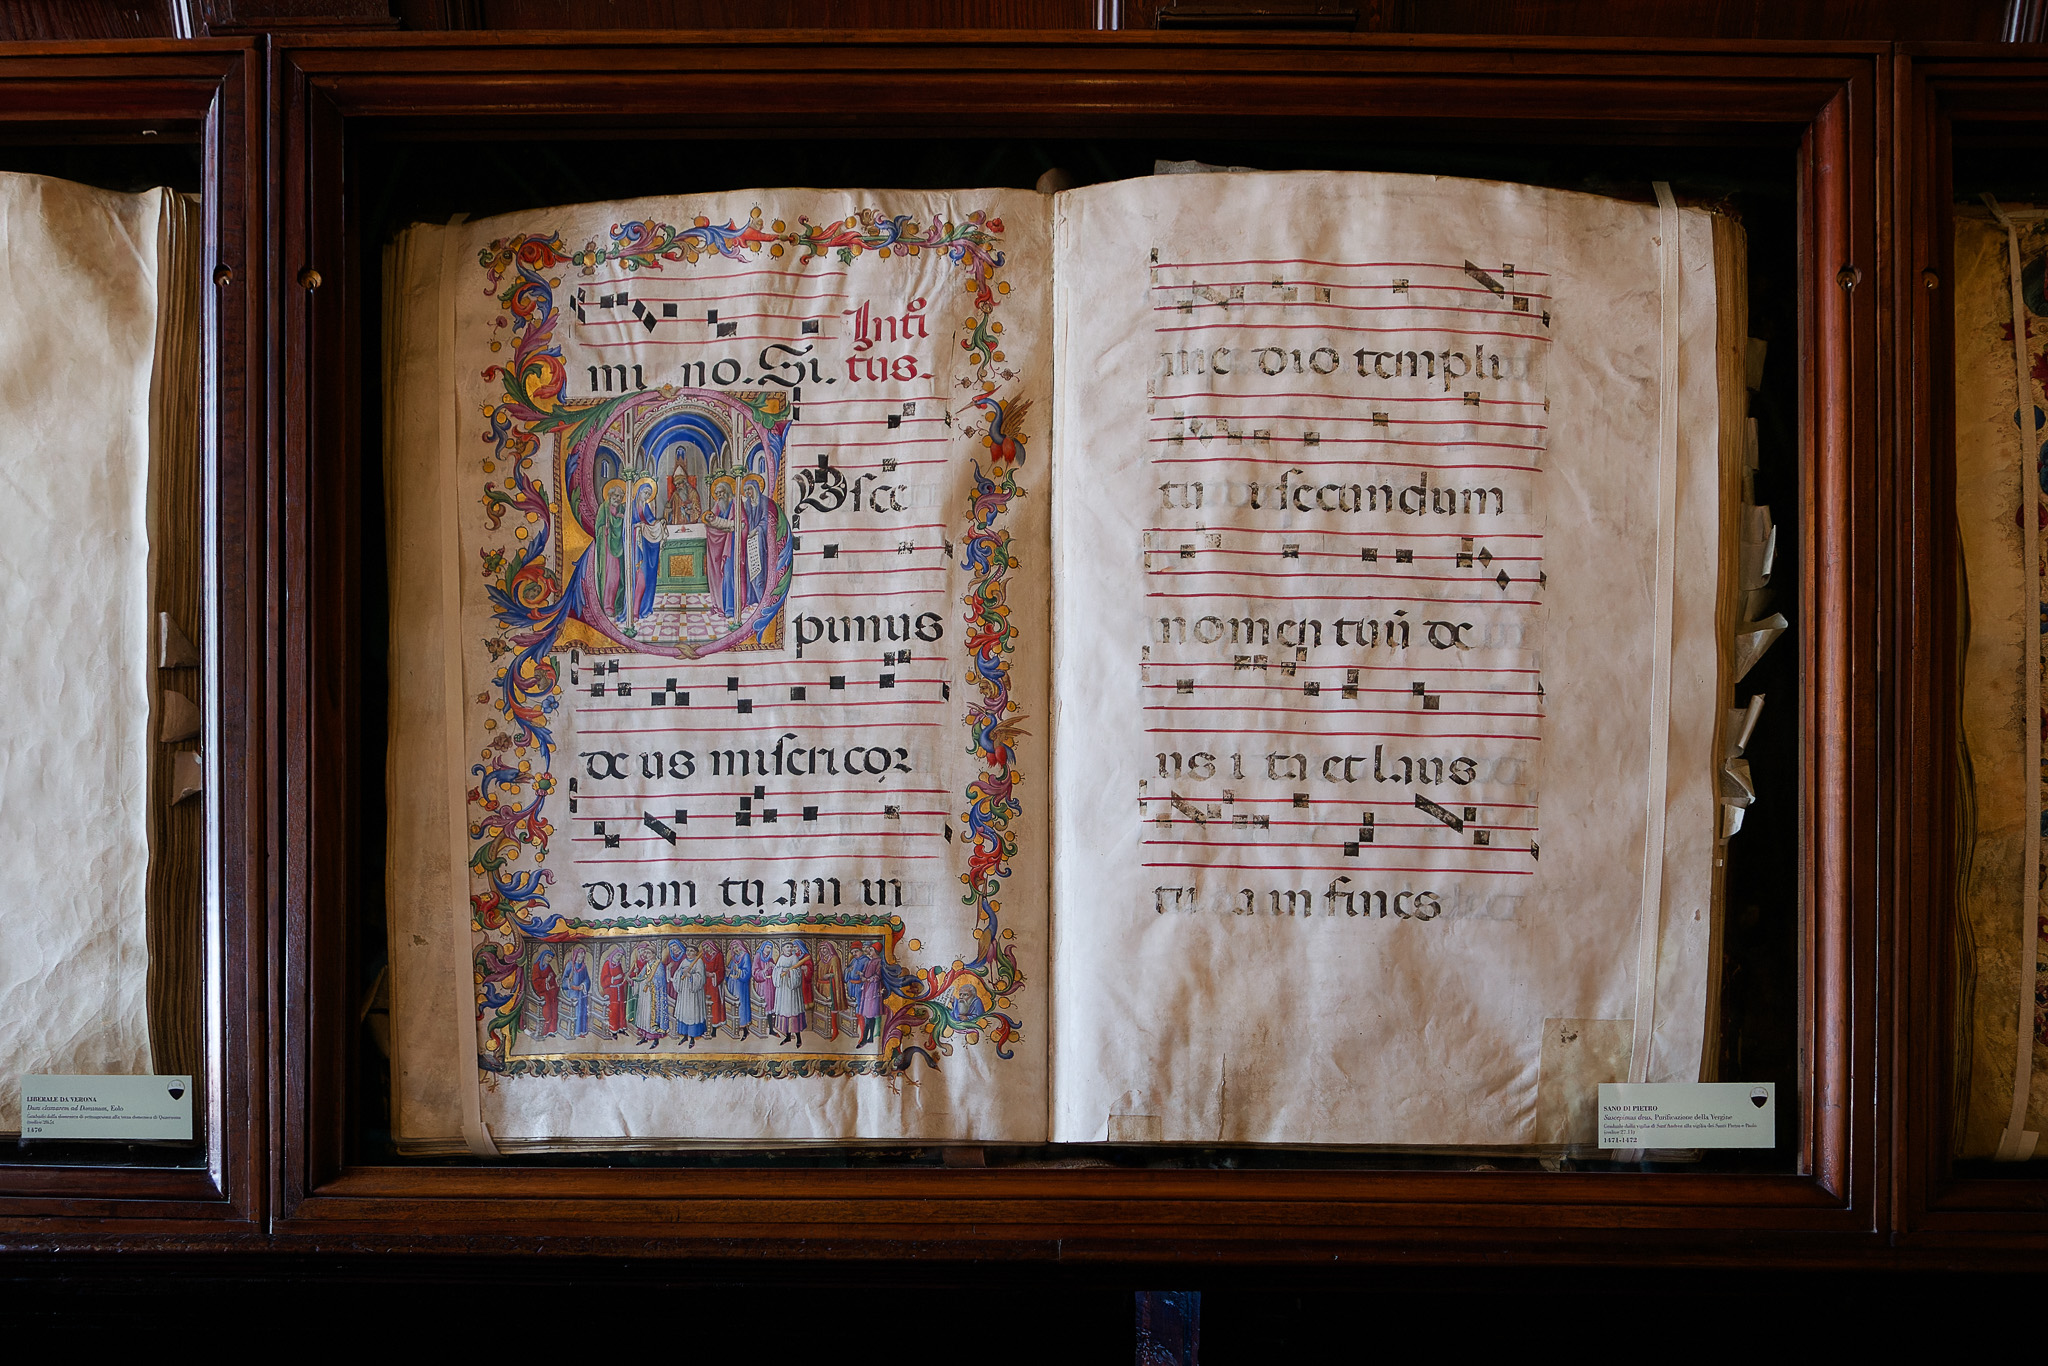 mi no. Si.
Intro
itus.
Usce
pimus
deus misericor
diam tuam in
medio templi
tui secundum
nomen tuū de
us ita et laus
tua in fines
LIBERALE DA VERONA
Dum clamarem ad Dominum, Eolo
Graduale dalla domenica di settuagesima alla terza domenica di Quaresima
1470
SANO DI PIETRO
Suscepimus deus, Purificazione della Vergine
Graduale dalla vigilia di Sant'Andrea alla vigilia dei Santi Pietro e Paolo
(codice 27.11)
1471-1472